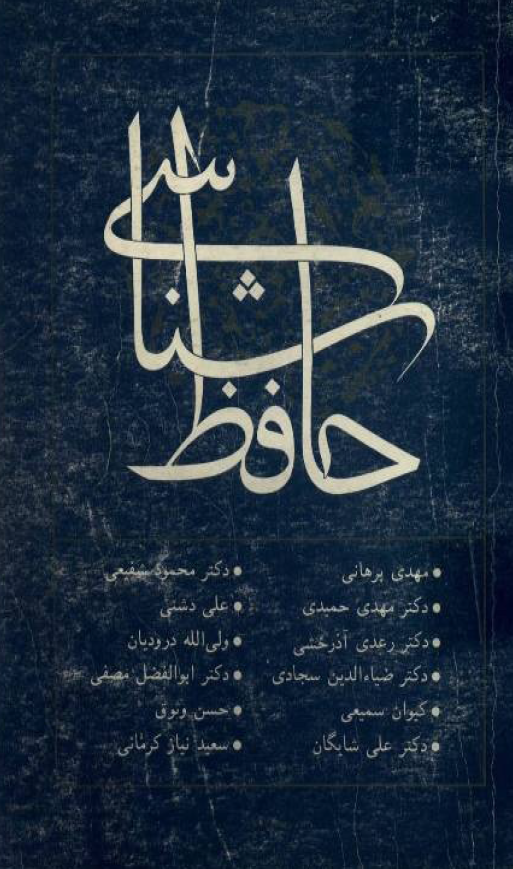 حافظ شناسی
• مهدی پرهانی
• دکتر مهدی حمیدی
• دکتر رعدی آذرخشی
• دکتر ضیاءالدین سجادی
• کیوان سمیعی
• دکتر علی شایگان
• دکتر محمود شفیعی
• علی دشتی
• ولی‌الله درودیان
• دکتر ابوالفضل مصفی
• حسن وثوق
• سعید نیاز کرمانی